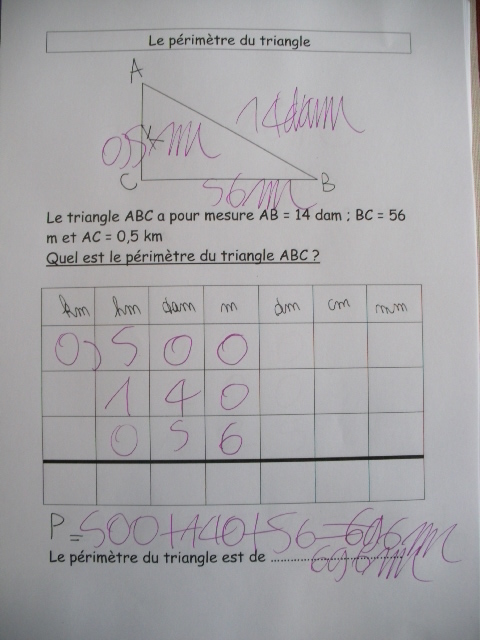 Le périmètre du triangle
A
14 dam
0,5 km
C
56 m
B
Le triangle ABC a pour mesure AB = 14 dam ; BC = 56
m et AC = 0,5 km
Quel est le périmètre du triangle ABC ?
km hm dam m dm cm mm
0, 5 0 0
1 4 0
0 5 6
P = 500+140+56=696m
Le périmètre du triangle est de ................................
696m